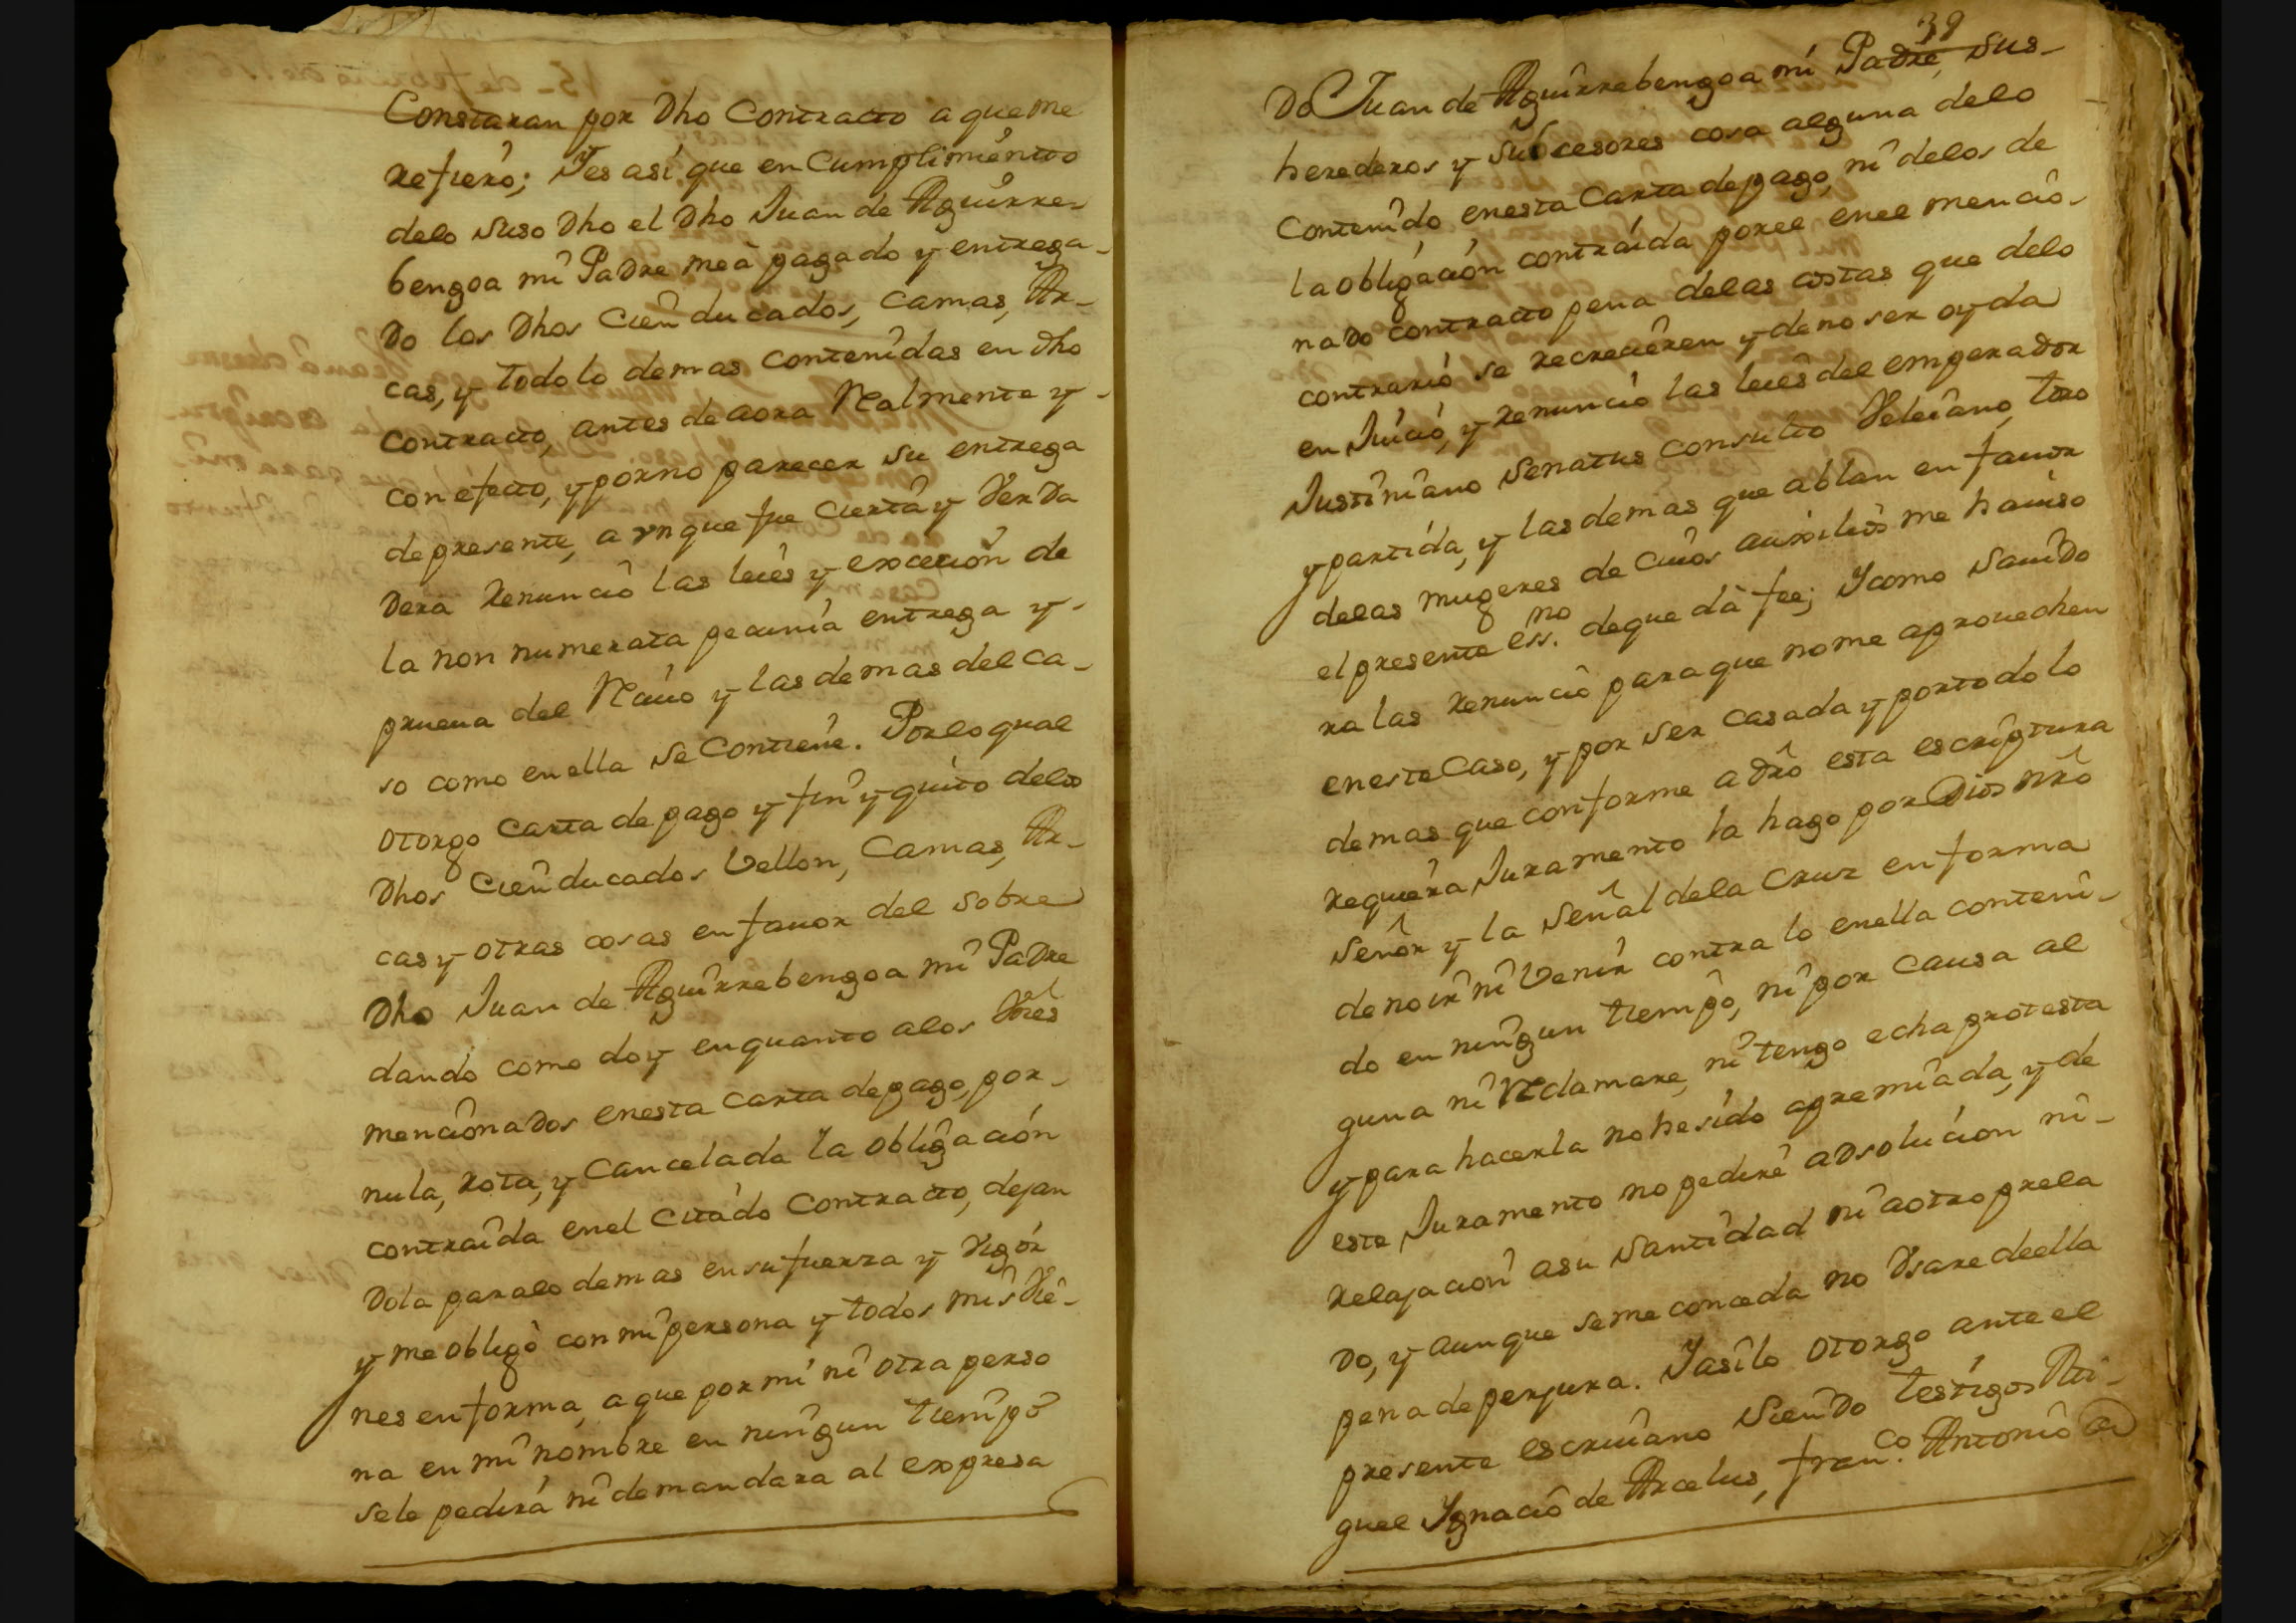 Constaran por Dho Contracto a que me
refiero; Yes así que en Cumplimiento
delo suso Dho el Dho Juan de Aguirre-
bengoa mi Padre me à pagado y entrega-
do los Dhos Cien ducados, camas, Ar-
cas, y todo lo demas contenidas en dho
contracto, antes de aora Realmente y-
con efecto, y por no parecer su entrega
de presente, a vnque fue Cierta y Verda
dera Renuncio las leies y excecion de
la non numerata pecunia entrega y-
prueua del Reciuo y las demas del ca-
so como en ella se Contiene. Por lo qual
otorgo Carta de pago y fin y quito delos
Dhos Cien ducados Vellon, Camas, Ar-
cas y otras cosas en fauor del sobre
Dho Juan de Aguirrebengoa mi Padre
dando como doy en quanto a los
mencionados en esta carta de pago, por-
nula, Rota, y Cancelada la obligacion
contraida enel Citado Contracto, dejan
dola para lo demas en su fuerza y Vigor
y me obligo con mi persona y todos mis Vie-
nes en forma, a que por mi ni otra perso
na en mi nombre en ningun tiempo
se le pedirá ni demandara al expresa
39
do Juan de Aguirrebengoa mi Padre, sus-
herederos y subcesores cosa alguna delo
Contenido en esta Carta de pago, ni delos de
la obligación contraída por el en el mencio-
nado contracto pena delas costas que delo
contrario se recrecieren y de no ser oyda
en Juicio, y Renuncio las leies del emperador
Justiniano Senatus Consulto Veleiano, toro
y partida, y las demas que ablan en fauor
delas mugeres de Cuios auxilios me hauiso
el presente ess.no de que dà fee; Y como sauido
ra las Renuncio para que no me aprouechen
en este Caso, y por ser casada y por todo lo
demas que conforme a dro esta escriptura
requiera Juramento la hago por Dios nro
Señor y la Señal dela Cruz en forma
de no ir ni Venir contra lo en ella conteni-
do en ningun tiempo, ni por causa al
guna ni Reclamare, ni tengo echa protesta
y para hacerla no he sido apremiada, y de
este Juramento no pediré adsolucion ni-
relajacion a su Santidad ni a otro prela
do, y aunque se me conceda no Vsare de ella
pena de perjura. Y asi lo otorgo ante el
presente escriuano Siendo testigos Mi-
guel Ygnacio de Arcelus, fran.co Antonio